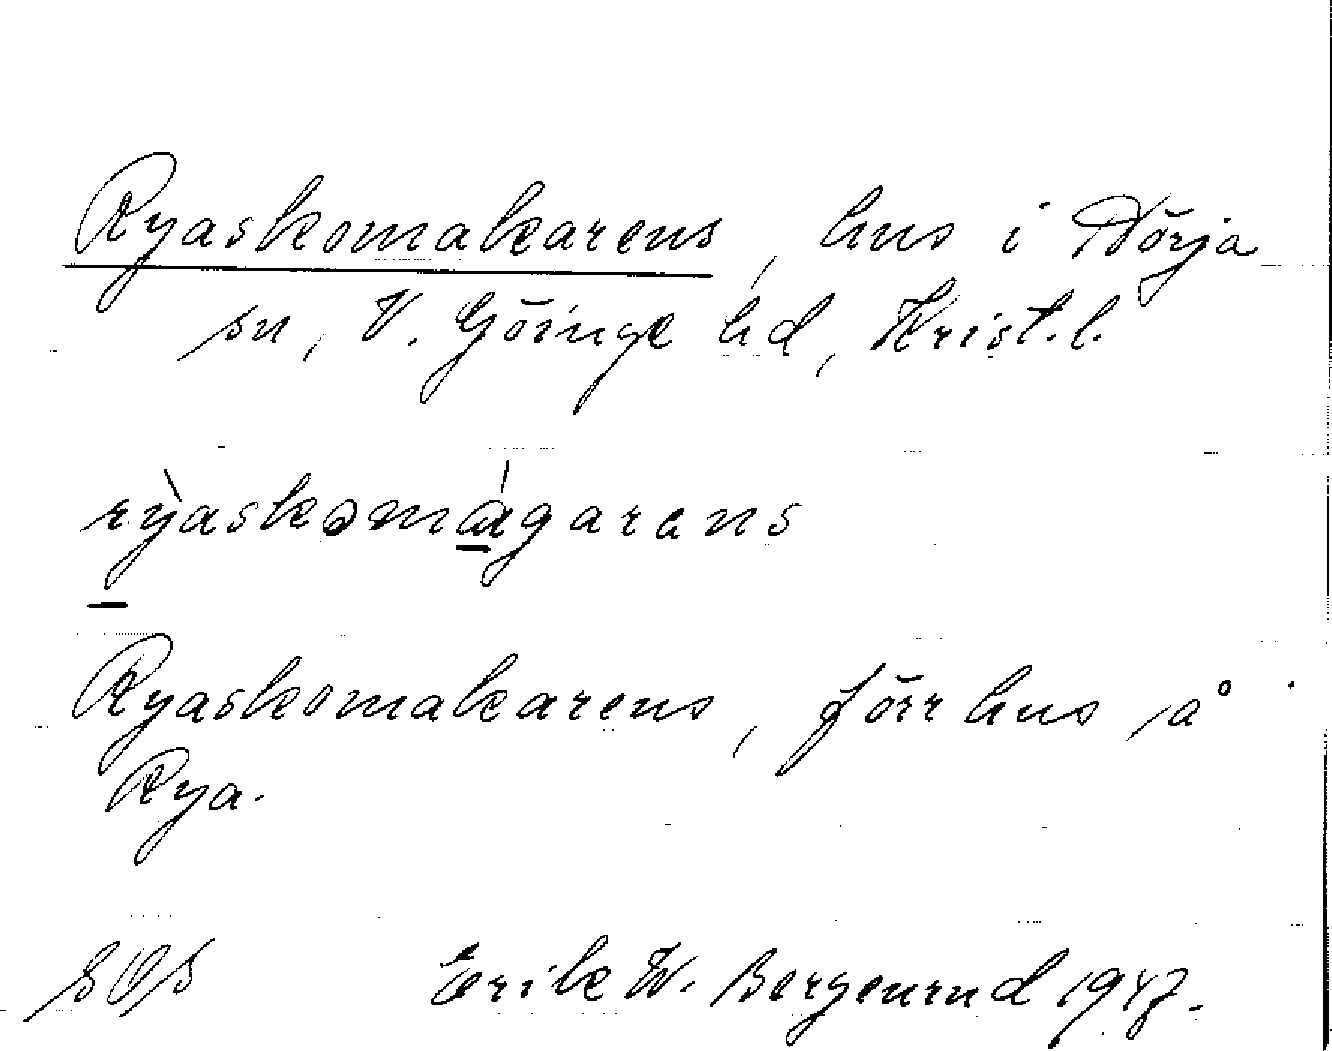 Ryaskomakarens, hus i Nörja
sn, V. Göinge hd, Krist.l.
rỳaskomágarens
Ryaskomakarens, förr hus på
Rya.
SOS Erik W. Bergenrud 1947.